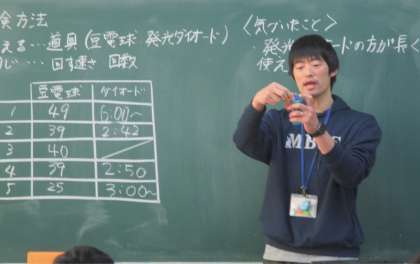 験方法
える…道具(豆電球 発光ダイオード)
じ…回す速さ 回数
豆電球 ダイオード
1 49 6:00〜
2 39 2:42
3 40
4 39 2:50
5 25 3:00〜
〈気づいたこと〉
・発光 ードの方が長く
使え
MB